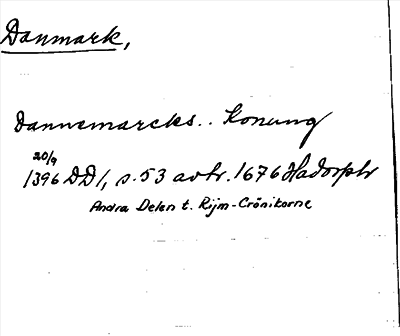 Danmark,
Dannemarcks.. Konung
20/9
1396 DD1, s. 53 avtr. 1676 Hadorph
Andra Delen t. Rijm-Crönikorne